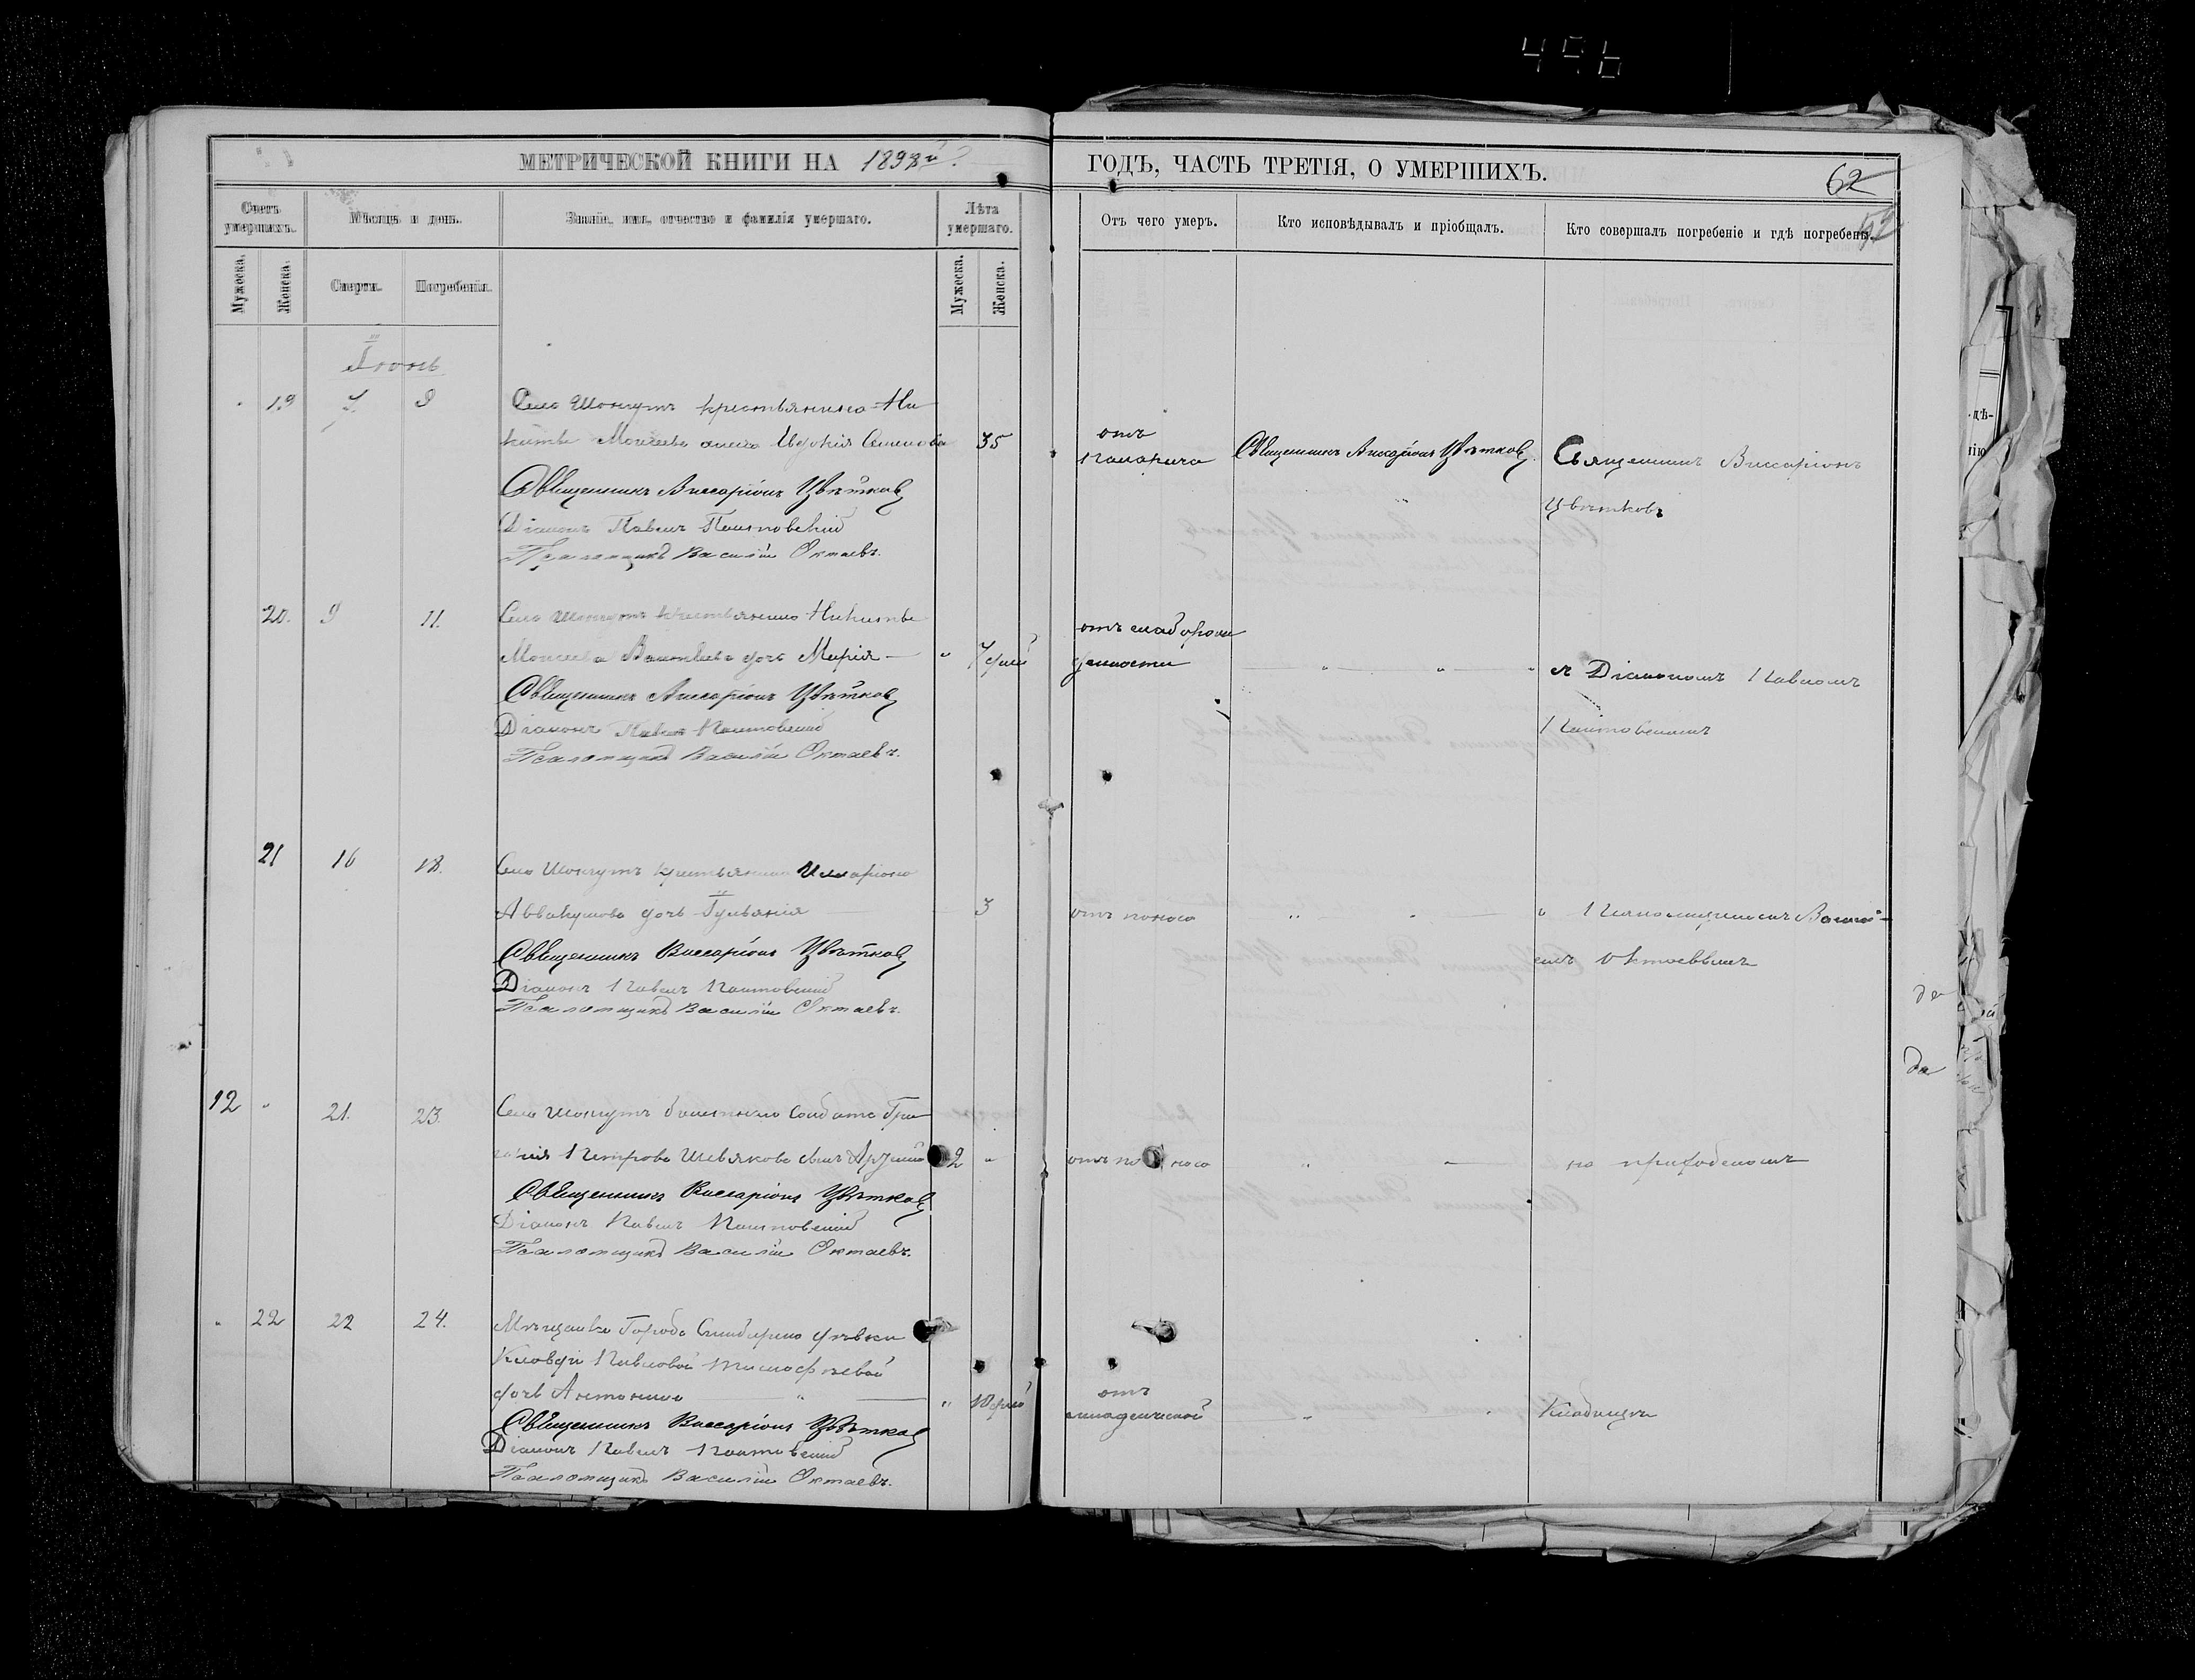 МЕТРИЧЕСКОЙ КНИГИ НА 1898й
ГОДЪ, ЧАСТЬ ТРЕТІЯ, О УМЕРШИХЪ.
62
Счетъ умершихъ.
Мѣсяцъ и день.
Званіе, имя, отчество и фамилія умершаго.
Лѣта умершаго.
Отъ чего умеръ.
Кто исповѣдывалъ и пріобщалъ.
Кто совершалъ погребеніе и гдѣ погребены.
Мужеска.
Женска.
Смерти.
Погребенія.
Мужеска.
Женска.
Іюнь
19 7. 9 Села Шонгутъ крестьянина Ни-
киты Моисеева жена Евдокія Семенова 35
отъ
Священникъ Виссаріонъ Цвѣтковъ
Священникъ Виссаріонъ
Цвѣтковъ
Священникъ Виссаріонъ Цвѣтковъ
Діаконъ Павелъ
Псаломщикъ Василій Октаевъ.
20. 9 11. Села Шонгутъ крестьянина Никиты
Моисеева дочь Марія „ 7 дней
отъ слаборож
денности
съ Діакономъ Павломъ
Священникъ Виссаріонъ Цвѣтковъ
Діаконъ Павелъ
Псаломщикъ Василій Октаевъ.
21 16 18. Села Шонгутъ крестьянина Илларіона
Аввакумова дочь Гульянія 3
отъ поноса
и Псаломщикомъ Васи-
емъ Октаевымъ
Священникъ Виссаріонъ Цвѣтковъ
Діаконъ Павелъ
Псаломщикъ Василій Октаевъ.
да
да
12 „ 21. 23. Села Шонгутъ солдата Гри
горія Петрова Шевякова сынъ 2 „
отъ поноса
на приходскомъ
Священникъ Виссаріонъ Цвѣтковъ
Діаконъ Павелъ
Псаломщикъ Василій Октаевъ.
„ 22 22 24. Мѣщанки Города Симбирска дѣвки
Клавдіи Павловой
дочь Антонина „ 10 дней
отъ
младенческой
Кладбищѣ
Священникъ Виссаріонъ Цвѣтковъ
Діаконъ Павелъ
Псаломщикъ Василій Октаевъ.